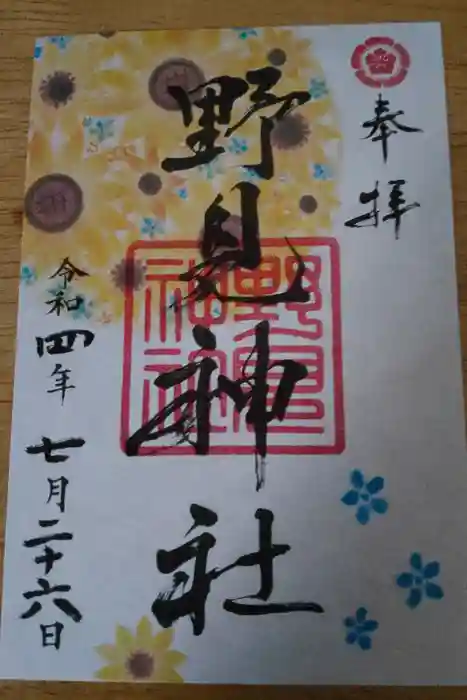 奉拝
野見神社
野見神社
令和四年
七月二十六日